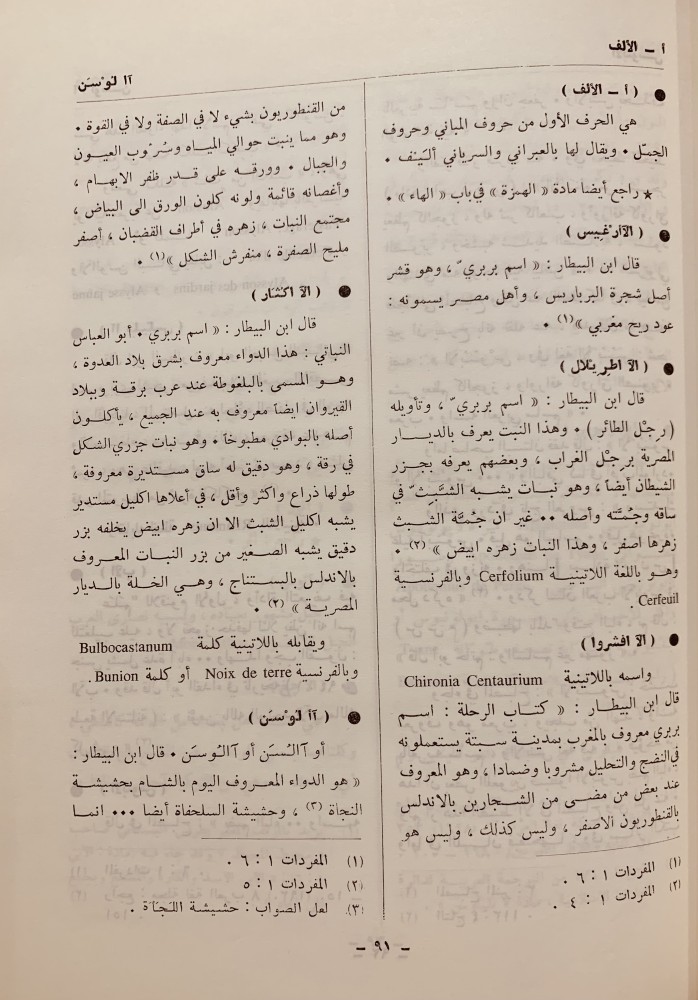 أ ــ الألف
آآ لُوْسَن
● ( أ ــ الألف )
هي الحرف الأول من حروف المباني وحروف
الجمّل ٠ ويقال لها بالعبراني والسرياني ألَيَف ٠
★ راجع أيضا مادة « الهمزة » في باب « الهاء » ٠
● ( الآآرْغيس )
قال ابن البيطار : « اسم بربريّ ، وهو قشر
أصل شجرة البرباريس ، وأهل مصر يسمونه :
عود ريح مغربي »(١) ٠
● ( الآ اطرِيْلال )
قال ابن البيطار : « اسم بربريّ ، وتأويله
( رِجْل الطائر ) ٠ وهذا النبت يعرف بالديار
المصرية برِجْل الغراب ، وبعضهم يعرفه بجزر
الشيطان أيضاً ، وهو نبات يشبه الشَّبِثّ في
ساقه وجُمَّته وأصله ٠٠ غير ان جُمَّة الشبث
زهرها اصفر ، وهذا النبات زهره ابيض » (٢) ٠
وهو باللغة اللاتينية Cerfolium وبالفرنسية
Cerfeuil .
● ( الآ افشروا )
واسمه باللاتينية Chironia Centaurium
قال ابن البيطار : « كتاب الرحلة : اسم
بربري معروف بالمغرب بمدينة سبتة يستعملونه
في النضج والتحليل مشروبا وضمادا ، وهو المعروف
عند بعض من مضى من الشجارين بالاندلس
بالقنطوريون الاصفر ، وليس كذلك ، وليس هو
(١) المفردات ١ : ٦ .
(٢) المفردات ١ : ٤ .
من القنطوريون بشيء لا في الصفة ولا في القوة ٠
وهو مما ينبت حوالي المياه وسُرُوب العيون
والجبال ٠ وورقه على قدر ظفر الابهام ،
وأغصانه قائمة ولونه كلون الورق الى البياض ،
مجتمع النبات ، زهره في أطراف القضبان ، أصفر
مليح الصفرة ، منفرش الشكل »(١) ٠
● ( الآ اكثار )
قال ابن البيطار : « اسم بربري ٠ أبو العباس
النباتي : هذا الدواء معروف بشرق بلاد العدوة ،
وهو المسمى بالبلغوطة عند عرب برقة وببلاد
القيروان ايضاً معروف به عند الجميع ، يأكلون
أصله بالبوادي مطبوخاً ٠ وهو نبات جزري الشكل
في رقة ، وهو دقيق له ساق مستديرة معروفة ،
طولها ذراع واكثر وأقل ، في أعلاها اكليل مستدير
يشبه اكليل الشبث الا ان زهره ابيض يخلفه بزر
دقيق يشبه الصغير من بزر النبات المعروف
بالاندلس بالبستناج ، وهي الخلة بالديار
المصرية » (٢) ٠
ويقابله باللاتينية كلمة Bulbocastanum
وبالفرنسية Noix de terre أو كلمة Bunion.
● ( آأ لُوسَن )
أو آآلُسَن أو آآلوسَن ٠ قال ابن البيطار :
« هو الدواء المعروف اليوم بالشام بحشيشة
النجاة (٣) ، وحشيشة السلحفاة أيضا ٠٠٠ انما
(١) المفردات ١ : ٦ .
(٢) المفردات ١ : ٥
(٣) لعل الصواب : حشيشة اللجَاَة .
ــ ٩١ ــ